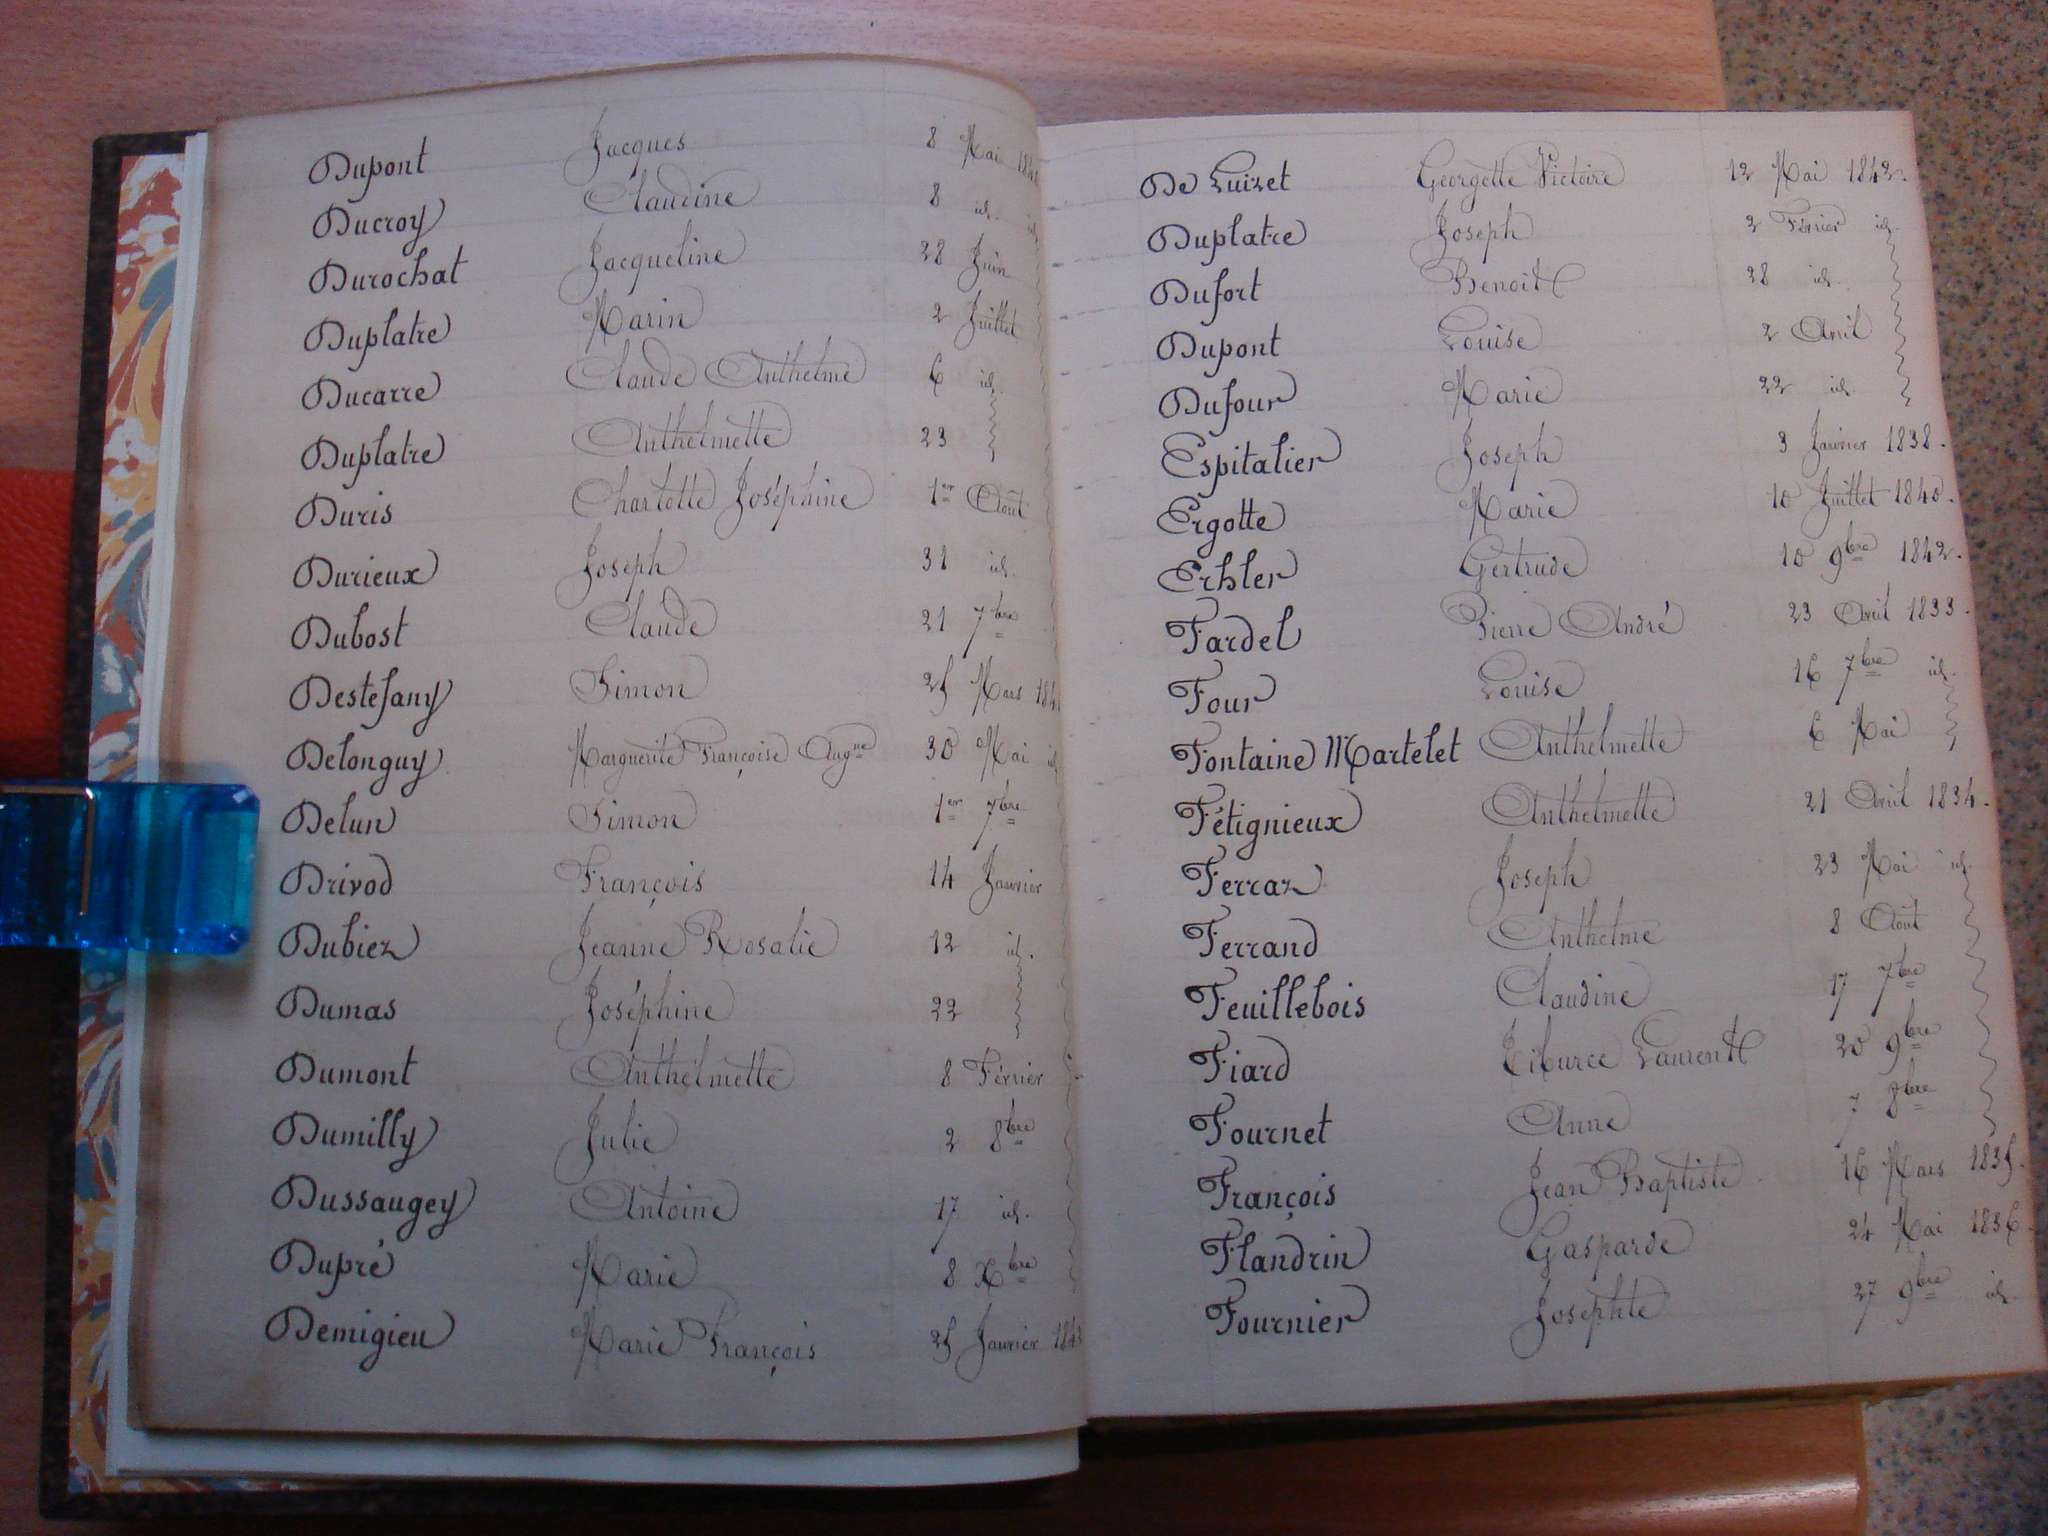 Dupont Jacques 8 Mai
Ducroy Claudine 8 id. id.
Durochat Jacqueline 28 Juin
Duplatre Marin 2 Juillet
Ducarre Claude Anthelme 6 id.
Duplatre Anthelmette 23
Duris Charlotte Joséphine 1er Août
Durieux Joseph 31 id.
Dubost Claude 21 7bre
Destefany Simon 25 Mars
Delonguy Marguerite Françoise Augne 30 Mai id.
Delun Simon 1er 7bre
Drivod François 14 Janvier
Dubiez Jeanne Rosalie 12 id.
Dumas Joséphine 22
Dumont Anthelmette 8 Février
Dumilly Julie 2 8bre
Dussaugey Antoine 17 id.
Dupré Marie 8 Xbre
Demigieu Marie François 25 Janvier
De Luizet Georgette Victoire 12 Mai 1842.
Duplatre Joseph 2 Février id.
Dufort Benoit 28 id.
Dupont Louise 2 Avril
Dufour Marie 22 id.
Espitalier Joseph 3 Janvier 1838.
Ergotte Marie 10 Juillet 1840.
Erhler Gertrude 10 9bre 1842.
Fardel Pierre André 23 Avril 1833.
Four Louise 16 7bre id.
Fontaine Martelet Anthelmette 6 Mai
Fétignieux Anthelmette 21 Avril 1834.
Ferraz Joseph 23 Mai id.
Ferrand Anthelme 8 Août
Feuillebois Claudine 17 7bre
Fiard Tiburce Laurent 20 9bre
Fournet Anne 7 8bre
François Jean Baptiste 16 Mars 1835.
Flandrin Gasparde 24 Mai 1836.
Fournier Josephte 27 9bre id.